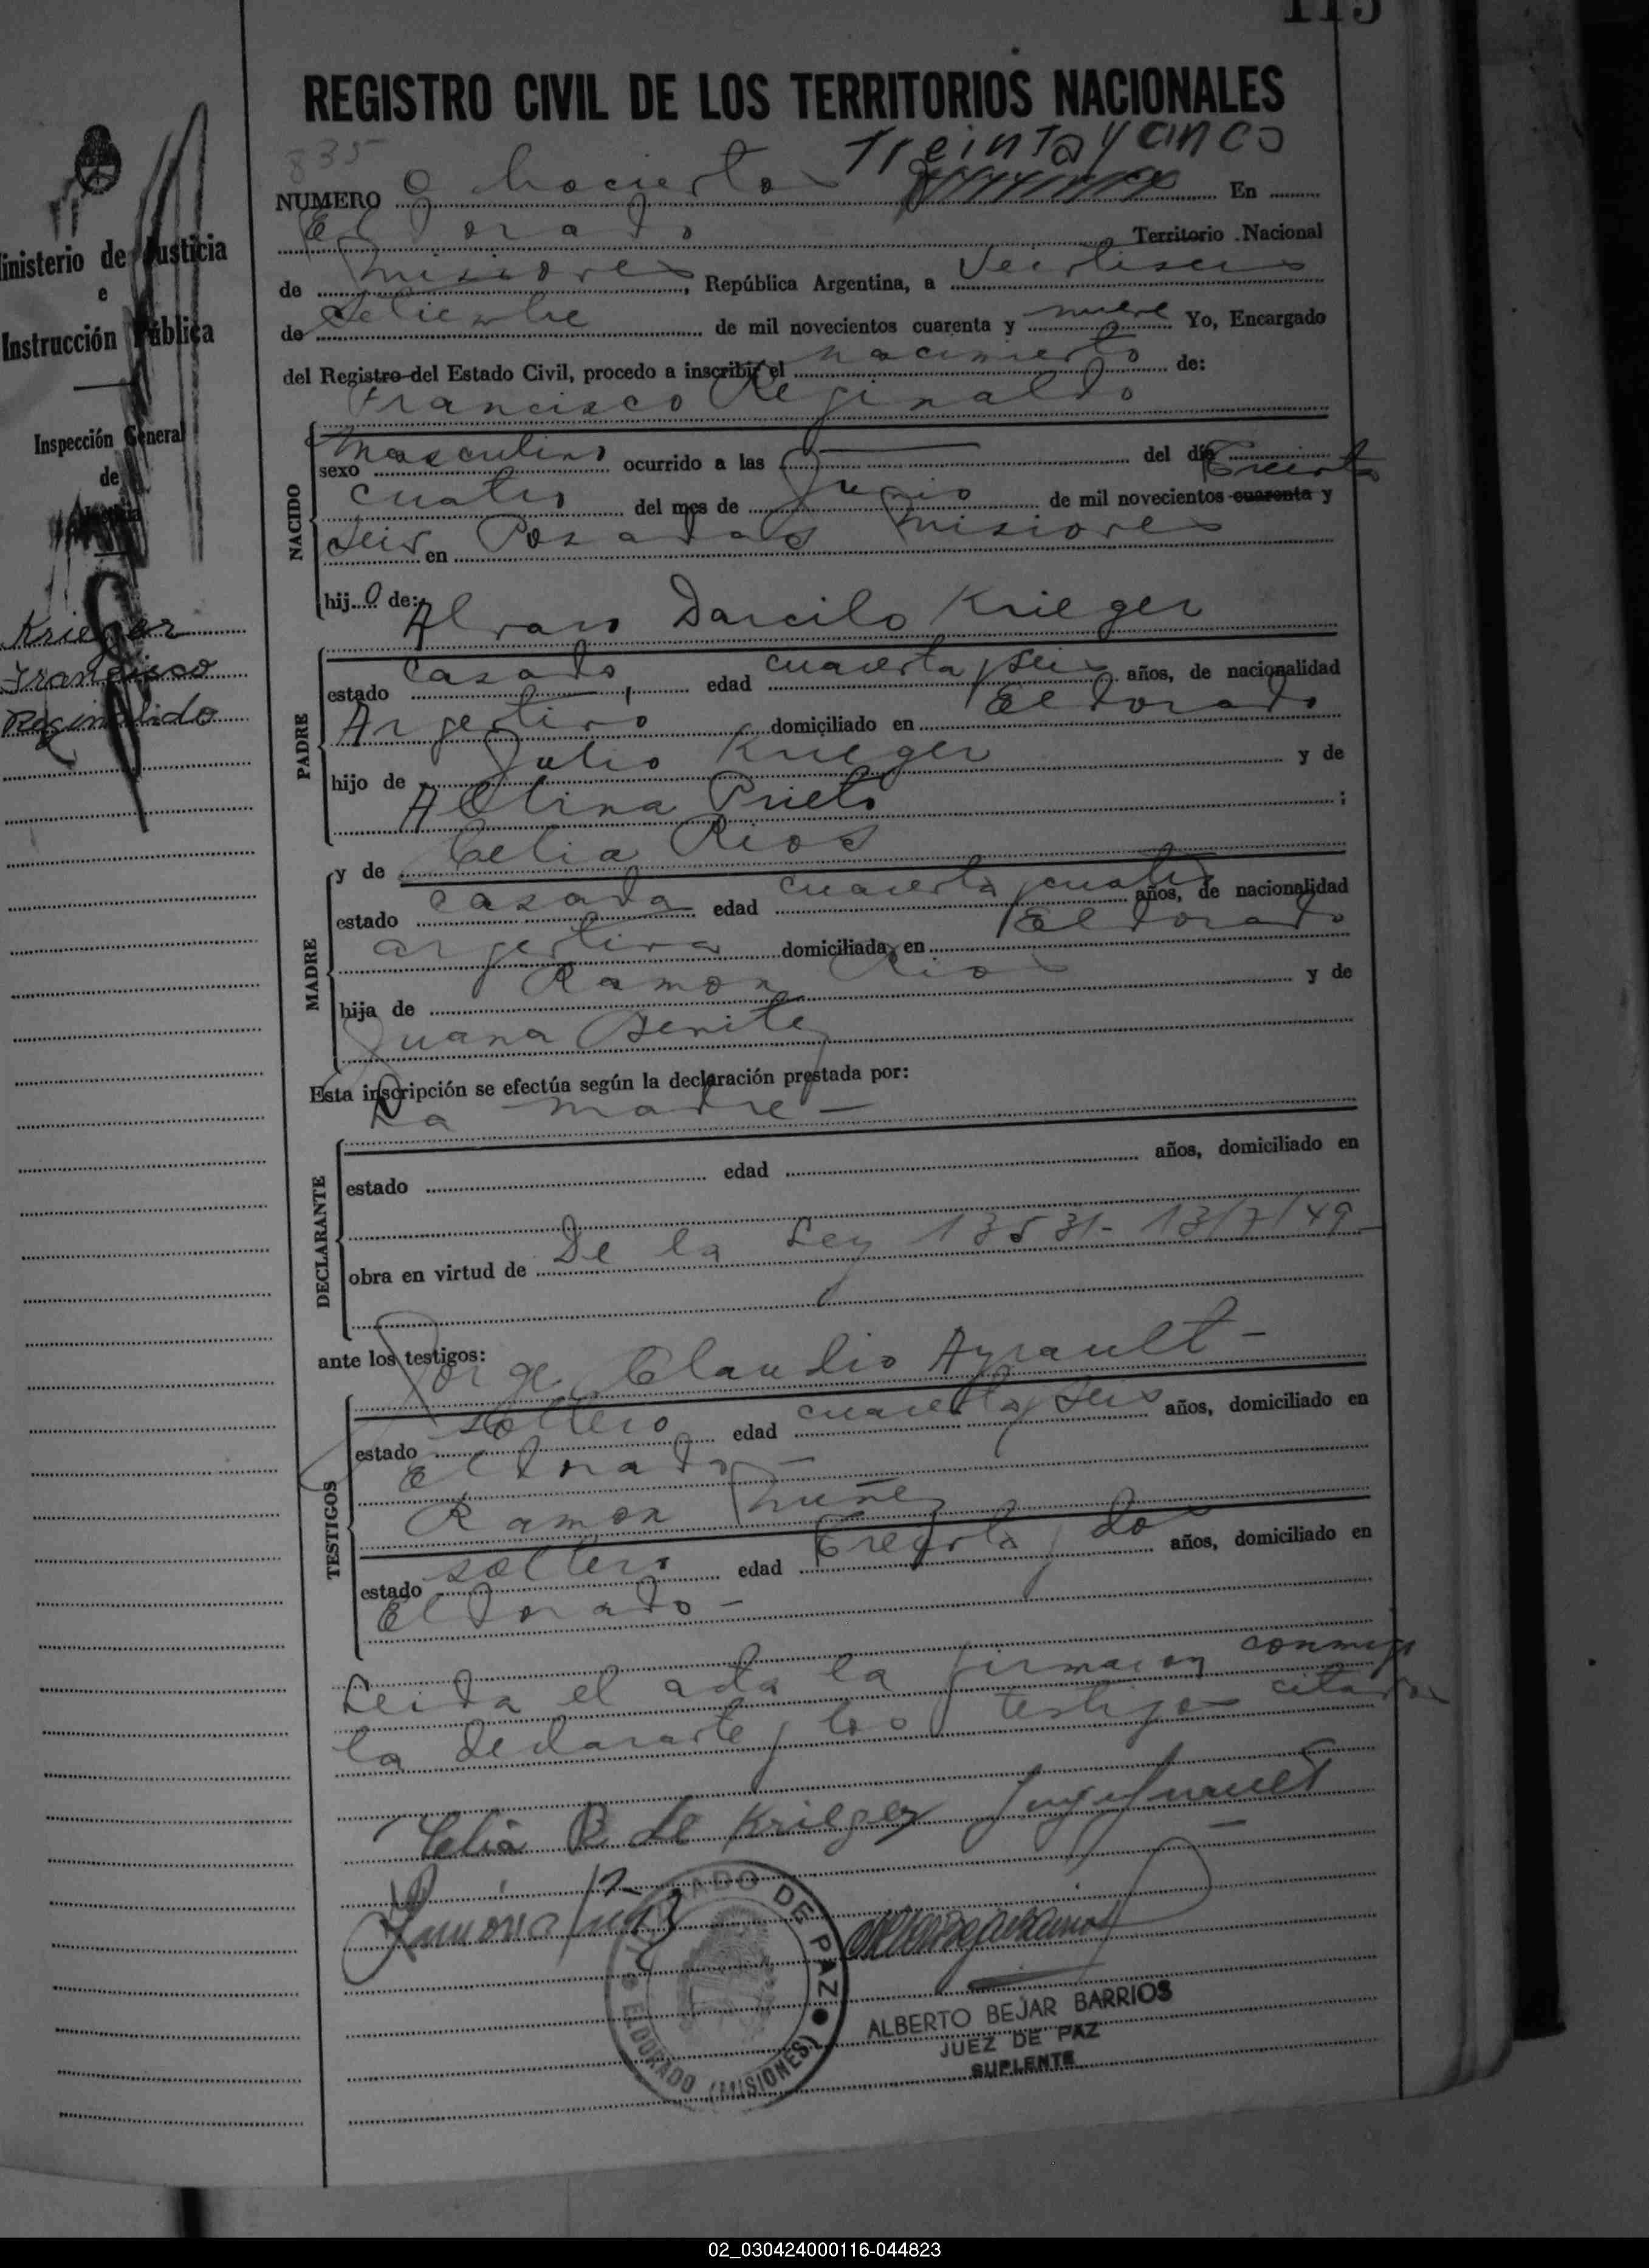 115
REGISTRO CIVIL DE LOS TERRITORIOS NACIONALES
835 Treinta y cinco
NUMERO Ochocientos En
Eldorado Territorio Nacional
de Misiones, República Argentina, a Veintiseis
de Setiembre de mil novecientos cuarenta y nueve Yo, Encargado
del Registro del Estado Civil, procedo a inscribir el nacimiento de:
Francisco Reginaldo
NACIDO
sexo Masculino ocurrido a las — del día
cuatro del mes de Junio de mil novecientos cuarenta y Treinta
seis en Posadas Misiones
hijo de: Alvaro Darcilo Krieger
PADRE
estado casado, edad cuarenta y seis años, de nacionalidad
Argentino domiciliado en Eldorado
hijo de Julio Krieger y de
Albina Prieto ;
y de Celia Rios
MADRE
estado casada edad cuarenta y cuatro años, de nacionalidad
argentina domiciliada en Eldorado
hija de Ramon Rios y de
Juana Benitez
Esta inscripción se efectúa según la declaración prestada por:
La madre —
DECLARANTE
estado edad años, domiciliado en
obra en virtud de De la Ley 13531- 13/7/49
ante los testigos: Jorge Claudio Ayrault —
TESTIGOS
estado soltero edad cuarenta y seis años, domiciliado en
Eldorado —
Ramon Nuñez
estado soltero edad Treinta y dos años, domiciliado en
Eldorado —
Leida el acta la firman conmigo
la declarante y los testigos citados
Celia R de Krieger
JUZGADO DE PAZ
ELDORADO (MISIONES)
ALBERTO BEJAR BARRIOS
JUEZ DE PAZ
SUPLENTE
Ministerio de Justicia
e
Instrucción Pública
Inspección General
de
Krieger
Francisco
Reginaldo
02_030424000116-044823